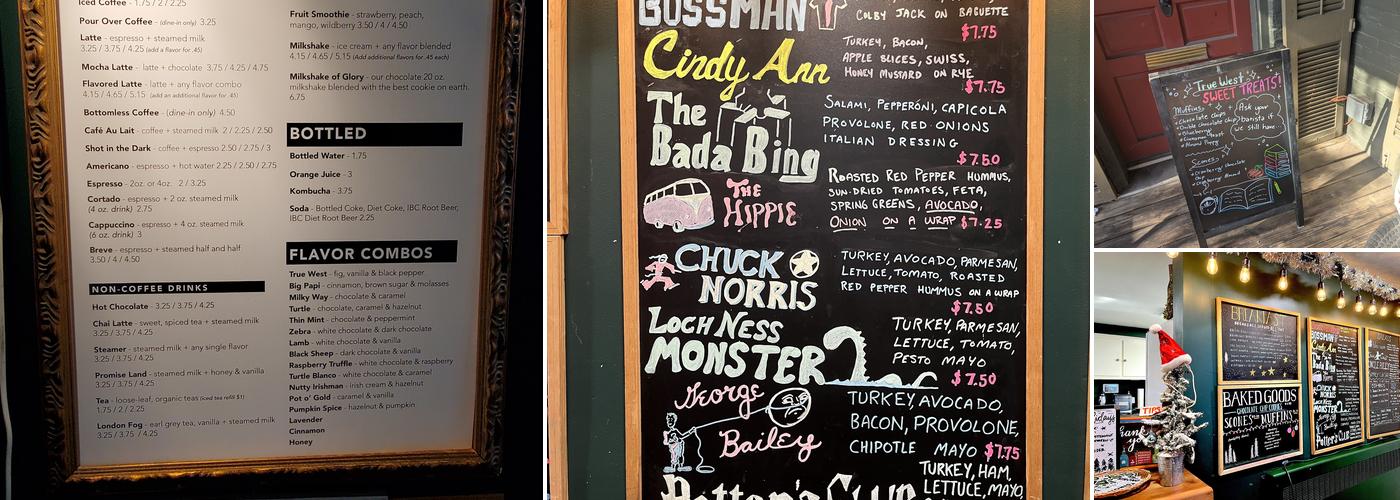 Iced Coffee - 1.75 / 2 / 2.25
Pour Over Coffee - (dine-in only) 3.25
Latte - espresso + steamed milk
3.25 / 3.75 / 4.25 (add a flavor for .45)
Mocha Latte - latte + chocolate 3.75 / 4.25 / 4.75
Flavored Latte - latte + any flavor combo
4.15 / 4.65 / 5.15 (add an additional flavor for .45)
Bottomless Coffee - (dine-in only) 4.50
Café Au Lait - coffee + steamed milk 2 / 2.25 / 2.50
Shot in the Dark - coffee + espresso 2.50 / 2.75 / 3
Americano - espresso + hot water 2.25 / 2.50 / 2.75
Espresso - 2oz. or 4oz. 2 / 3.25
Cortado - espresso + 2 oz. steamed milk
(4 oz. drink) 2.75
Cappuccino - espresso + 4 oz. steamed milk
(6 oz. drink) 3
Breve - espresso + steamed half and half
3.50 / 4 / 4.50
NON-COFFEE DRINKS
Hot Chocolate - 3.25 / 3.75 / 4.25
Chai Latte - sweet, spiced tea + steamed milk
3.25 / 3.75 / 4.25
Steamer - steamed milk + any single flavor
3.25 / 3.75 / 4.25
Promise Land - steamed milk + honey & vanilla
3.25 / 3.75 / 4.25
Tea - loose-leaf, organic teas (iced tea refill $1)
1.75 / 2 / 2.25
London Fog - earl grey tea, vanilla + steamed milk
3.25 / 3.75 / 4.25
Fruit Smoothie - strawberry, peach,
mango, wildberry 3.50 / 4 / 4.50
Milkshake - ice cream + any flavor blended
4.15 / 4.65 / 5.15 (Add additional flavors for .45 each)
Milkshake of Glory - our chocolate 20 oz.
milkshake blended with the best cookie on earth.
6.75
BOTTLED
Bottled Water - 1.75
Orange Juice - 3
Kombucha - 3.75
Soda - Bottled Coke, Diet Coke, IBC Root Beer,
IBC Diet Root Beer 2.25
FLAVOR COMBOS
True West - fig, vanilla & black pepper
Big Papi - cinnamon, brown sugar & molasses
Milky Way - chocolate & caramel
Turtle - chocolate, caramel & hazelnut
Thin Mint - chocolate & peppermint
Zebra - white chocolate & dark chocolate
Lamb - white chocolate & vanilla
Black Sheep - dark chocolate & vanilla
Raspberry Truffle - white chocolate & raspberry
Turtle Blanco - white chocolate & caramel
Nutty Irishman - Irish cream & hazelnut
Pot o' Gold - caramel & vanilla
Pumpkin Spice - hazelnut & pumpkin
Lavender
Cinnamon
Honey
BOSSMAN
COLBY JACK ON BAGUETTE
$7.75
Cindy Ann
TURKEY, BACON,
APPLE SLICES, SWISS,
HONEY MUSTARD ON RYE
$7.75
The
Bada Bing
SALAMI, PEPPERONI, CAPICOLA
PROVOLONE, RED ONIONS
ITALIAN DRESSING
$7.50
THE
HIPPIE
ROASTED RED PEPPER HUMMUS,
SUN-DRIED TOMATOES, FETA,
SPRING GREENS, AVOCADO,
ONION ON A WRAP $7.25
CHUCK
NORRIS
TURKEY, AVOCADO, PARMESAN,
LETTUCE, TOMATO, ROASTED
RED PEPPER HUMMUS ON A WRAP
$7.50
LOCH NESS
MONSTER
TURKEY, PARMESAN,
LETTUCE, TOMATO,
PESTO MAYO
$7.50
George
Bailey
TURKEY, AVOCADO,
BACON, PROVOLONE,
CHIPOTLE MAYO $7.75
Potter's Club
TURKEY, HAM,
LETTUCE, MAYO,
True West
SWEET TREATS!
Muffins
Chocolate chip
Double chocolate chip
Blueberry
Cinnamon toast
Almond Poppy
Ask your
barista if
we still have...
Scones
Cranberry chocolate
chip
BAKED GOODS
CHOCOLATE CHIP COOKIES
SCONES MUFFINS
BOSSMAN
Potter's Club
TIPS
Thank
you